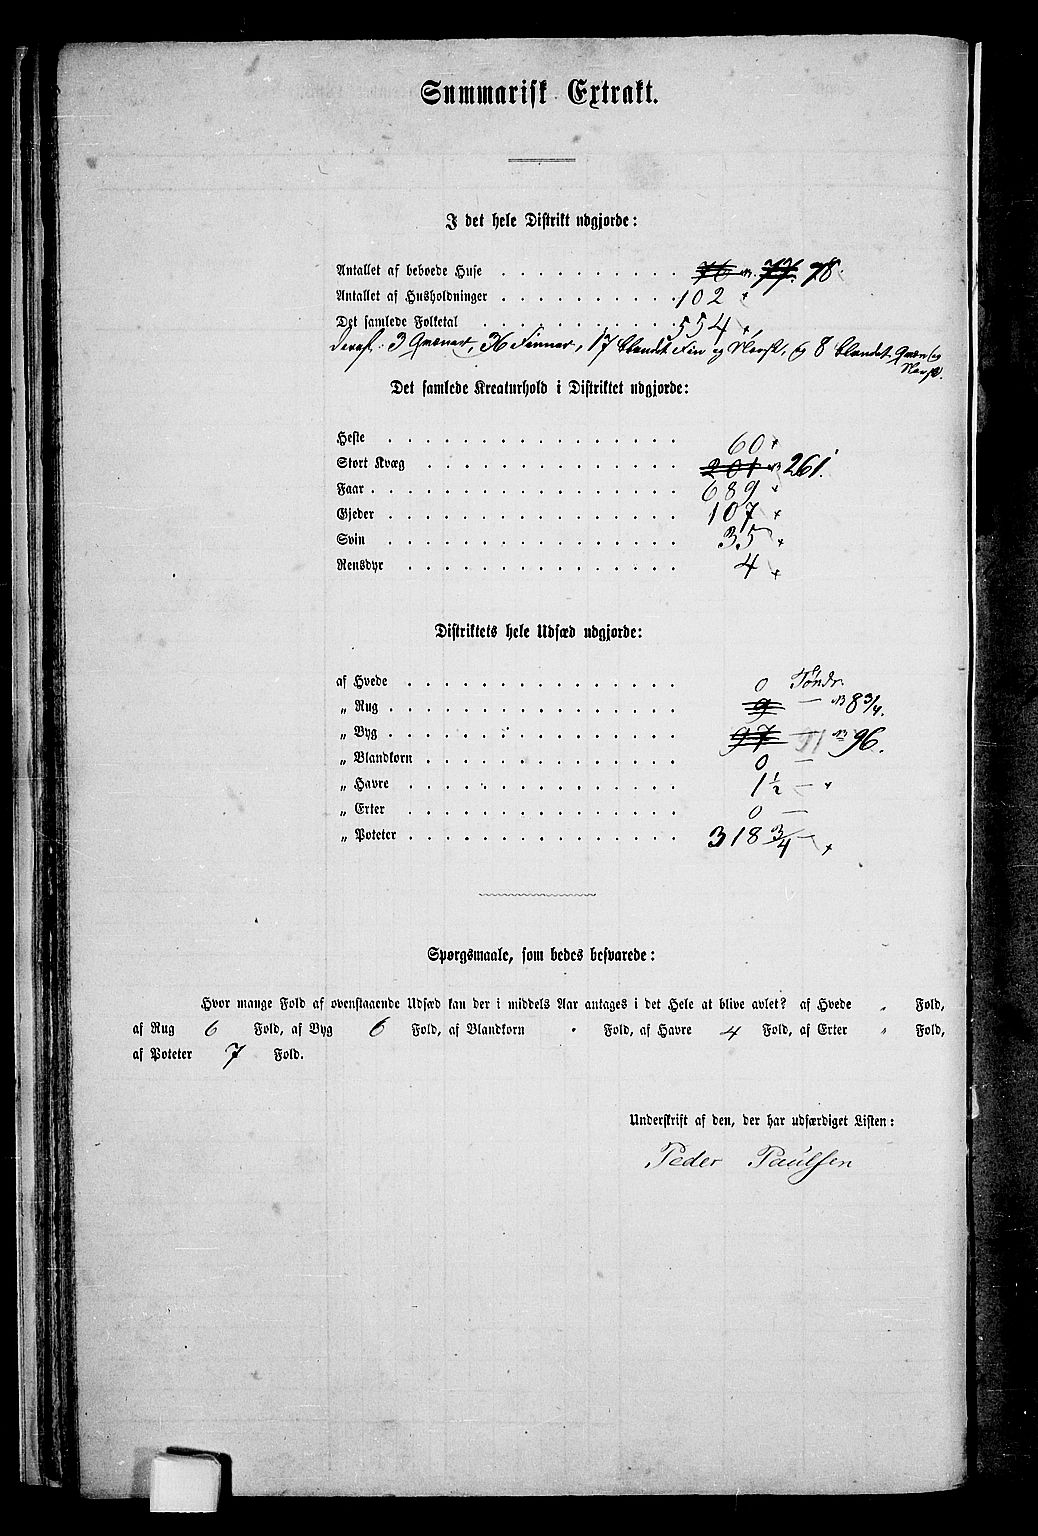 Summarisk Extrakt.
I det hele Distrikt udgjorde:
Antallet af beboede Huse . . . . . . . . . . 76 77. 78.
Antallet af Husholdninger . . . . . . . . . . 102
Det samlede Folketal . . . . . . . . . . . 554
deraf: 3 Qvæner, 36 Finner, 17 blandet Fin og Norsk, og 8 blandet Qvæn og
Norsk.
Det samlede Kreaturhold i Distriktet udgjorde:
Heste . . . . . . . . . . . . . . . . 60
Stort Kvæg . . . . . . . . . . . . . . 201 261.
Faar . . . . . . . . . . . . . . . . . 689
Gjeder . . . . . . . . . . . . . . . . 107
Svin . . . . . . . . . . . . . . . . 35
Rensdyr . . . . . . . . . . . . . . . 4
Distriktets hele Udsæd udgjorde:
af Hvede . . . . . . . . . . . . . . . 0 Tøndr.
„ Rug . . . . . . . . . . . . . . . . 9 — NB 8 3/4.
„ Byg . . . . . . . . . . . . . . . . 97 — NB 96.
„ Blandkorn . . . . . . . . . . . . . . 0 —
„ Havre . . . . . . . . . . . . . . . 1 1/2 —
„ Erter . . . . . . . . . . . . . . . 0 —
„ Poteter . . . . . . . . . . . . . . . 318 3/4 —
Spørgsmaale, som bedes besvarede:
Hvor mange Fold af ovenstaaende Udsæd kan der i middels Aar antages i det Hele at blive avlet? af Hvede „ Fold,
af Rug 6 Fold, af Byg 6 Fold, af Blandkorn „ Fold, af Havre 4 Fold, af Erter „ Fold,
af Poteter 7 Fold.
Underskrift af den, der har udfærdiget Listen:
Peder Paulsen